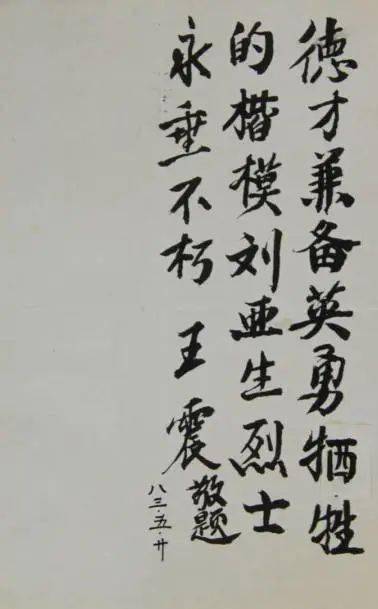 德才兼备英勇牺牲
的楷模刘亚生烈士
永垂不朽 王震敬题
八三·五·廿